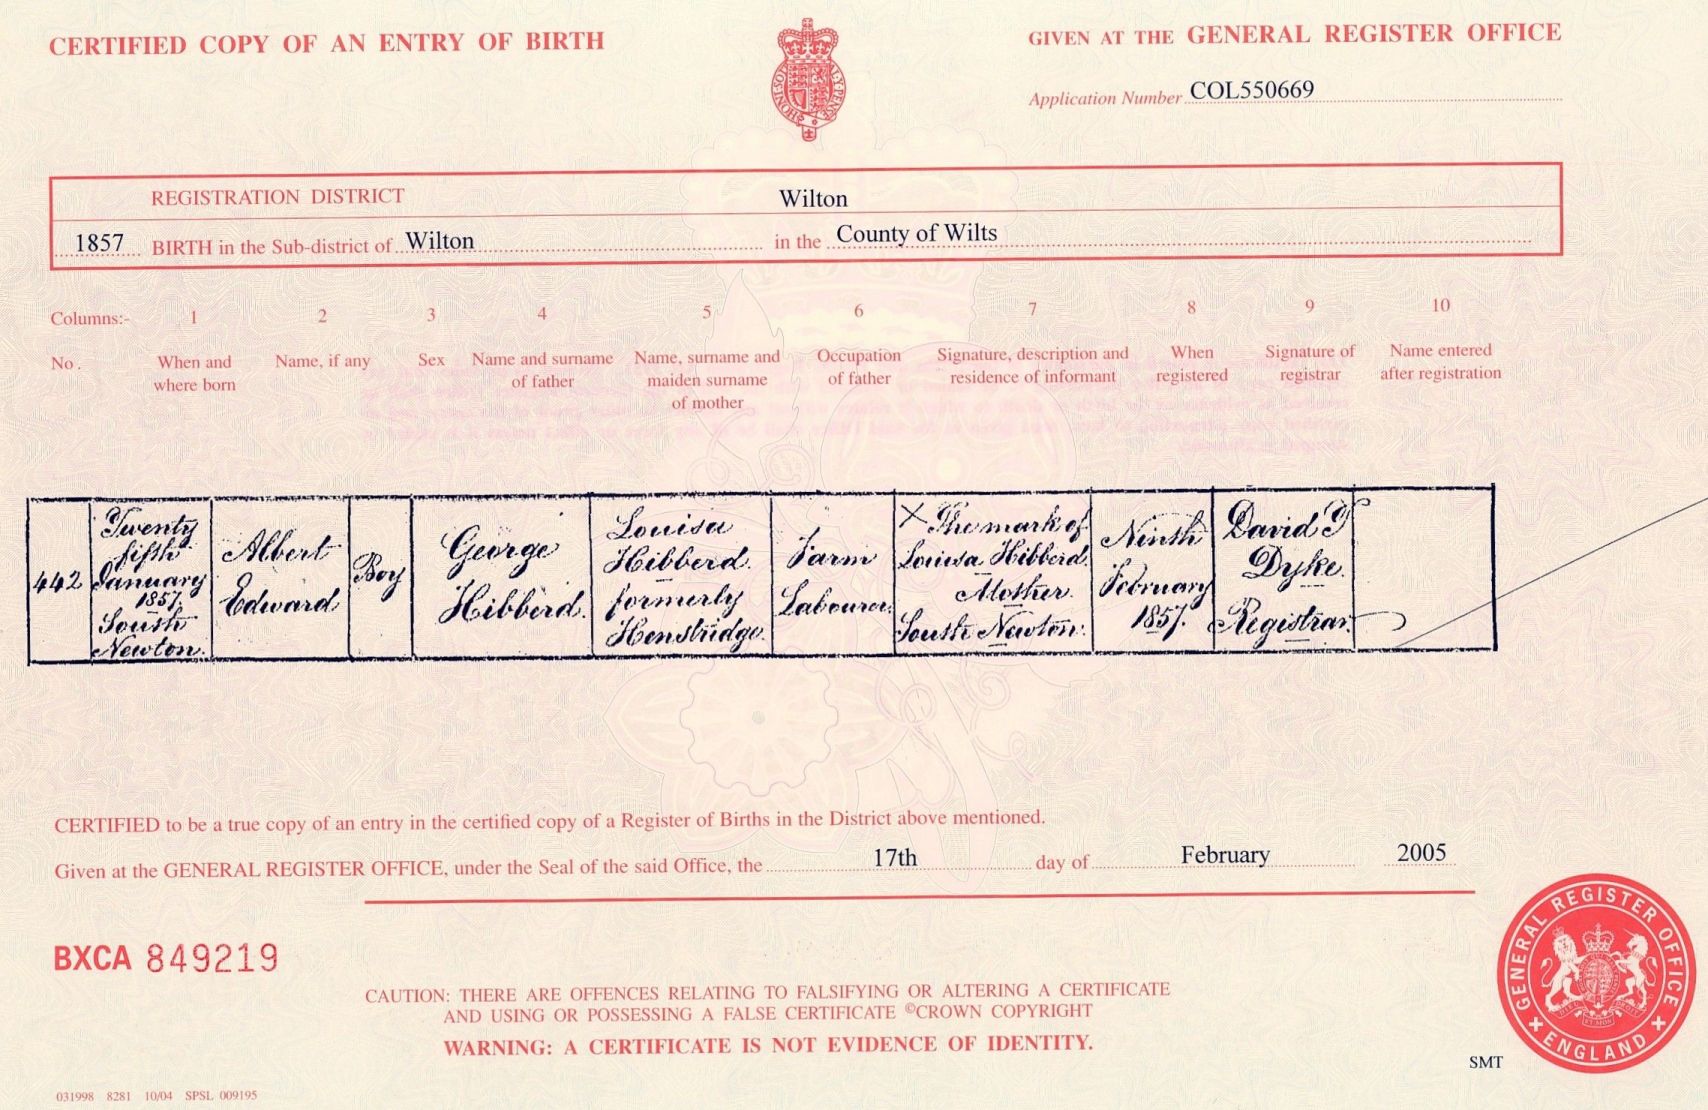 CERTIFIED COPY OF AN ENTRY OF BIRTH
GIVEN AT THE GENERAL REGISTER OFFICE
Application Number COL550669
REGISTRATION DISTRICT Wilton
1857 BIRTH in the Sub-district of Wilton in the County of Wilts
Columns:- 1 2 3 4 5 6 7 8 9 10
No.
When and
where born
Name, if any
Sex
Name and surname
of father
Name, surname and
maiden surname
of mother
Occupation
of father
Signature, description and
residence of informant
When
registered
Signature of
registrar
Name entered
after registration
442
Twenty
fifth
January
1857
South
Newton.
Albert
Edward
Boy
George
Hibberd.
Louisa
Hibberd.
formerly
Henstridge.
Farm
Labourer.
X The mark of
Louisa Hibberd
Mother.
South Newton.
Ninth
February
1857.
David T
Dyke.
Registrar.
CERTIFIED to be a true copy of an entry in the certified copy of a Register of Births in the District above mentioned.
Given at the GENERAL REGISTER OFFICE, under the Seal of the said Office, the 17th day of February 2005
BXCA 849219
CAUTION: THERE ARE OFFENCES RELATING TO FALSIFYING OR ALTERING A CERTIFICATE
AND USING OR POSSESSING A FALSE CERTIFICATE ©CROWN COPYRIGHT
WARNING: A CERTIFICATE IS NOT EVIDENCE OF IDENTITY.
GENERAL REGISTER OFFICE
ENGLAND
SMT
031998 8281 10/04 SPSL 009195